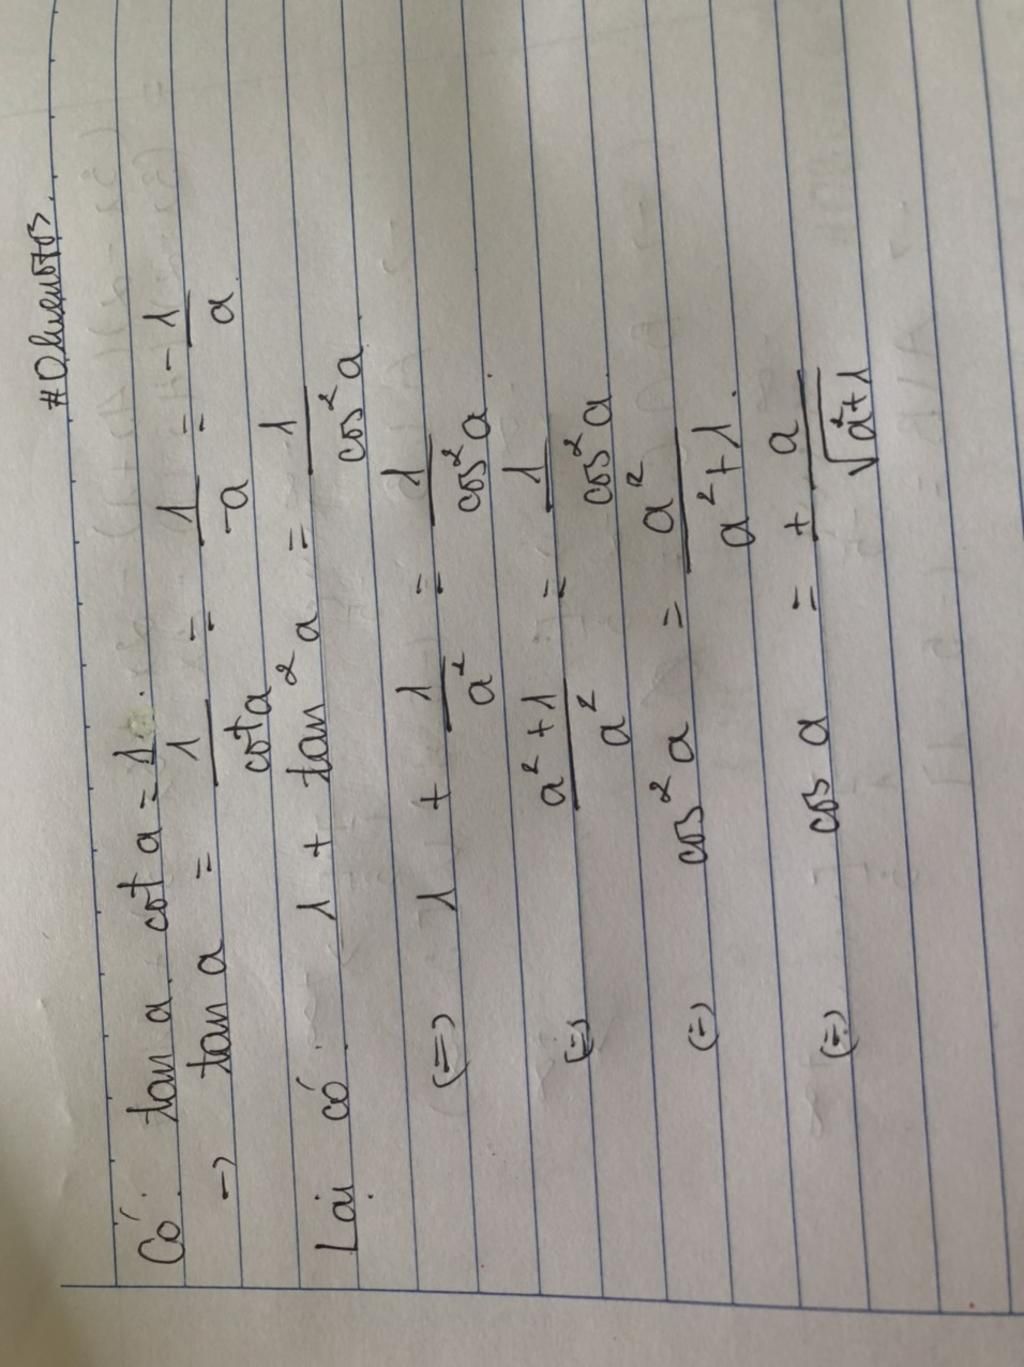 Có: tan a. cot a = 1.
→ tan a = 1/cot a = 1/-a = -1/a
Lại có: 1 + tan² a = 1/cos² a
(=) 1 + 1/a² = 1/cos² a.
(=) a² + 1/a² = 1/cos² a.
(=) cos² a = a²/a² + 1.
(=) cos a = ± a/√a² + 1